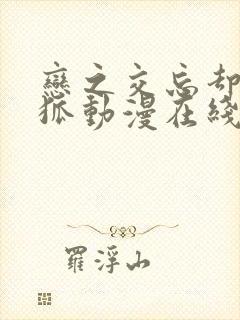 戀之交忘却
狐動漫在綫
羅浮山